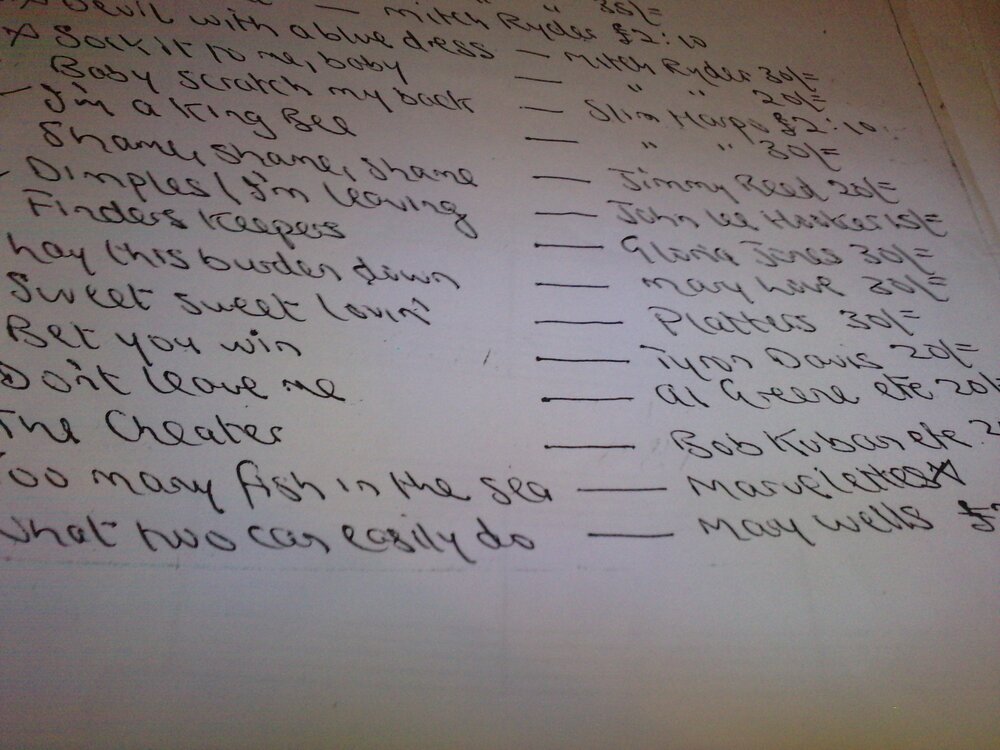 " " 35/=
— Mitch Ryder £2:10
X Devil with a blue dress — Mitch Ryder 30/=
X Sock it to me, baby — " " 20/=
Baby scratch my back — Slim Harpo £2:10
— I'm a King Bee — " " 30/=
Shame, shame, shame — Jimmy Reed 20/=
- Dimples / I'm leaving — John Lee Hooker 15/=
Finders Keepers — Gloria Jones 30/=
Lay this burden down — Mary Love 30/=
Sweet sweet lovin' — Platters 30/=
Bet you win — Tyron Davis 20/=
Don't leave me — Al Greene etc 20/
The Cheater — Bob Kuban etc
Too many fish in the sea — Marvelettes X
What two can easily do — Mary Wells